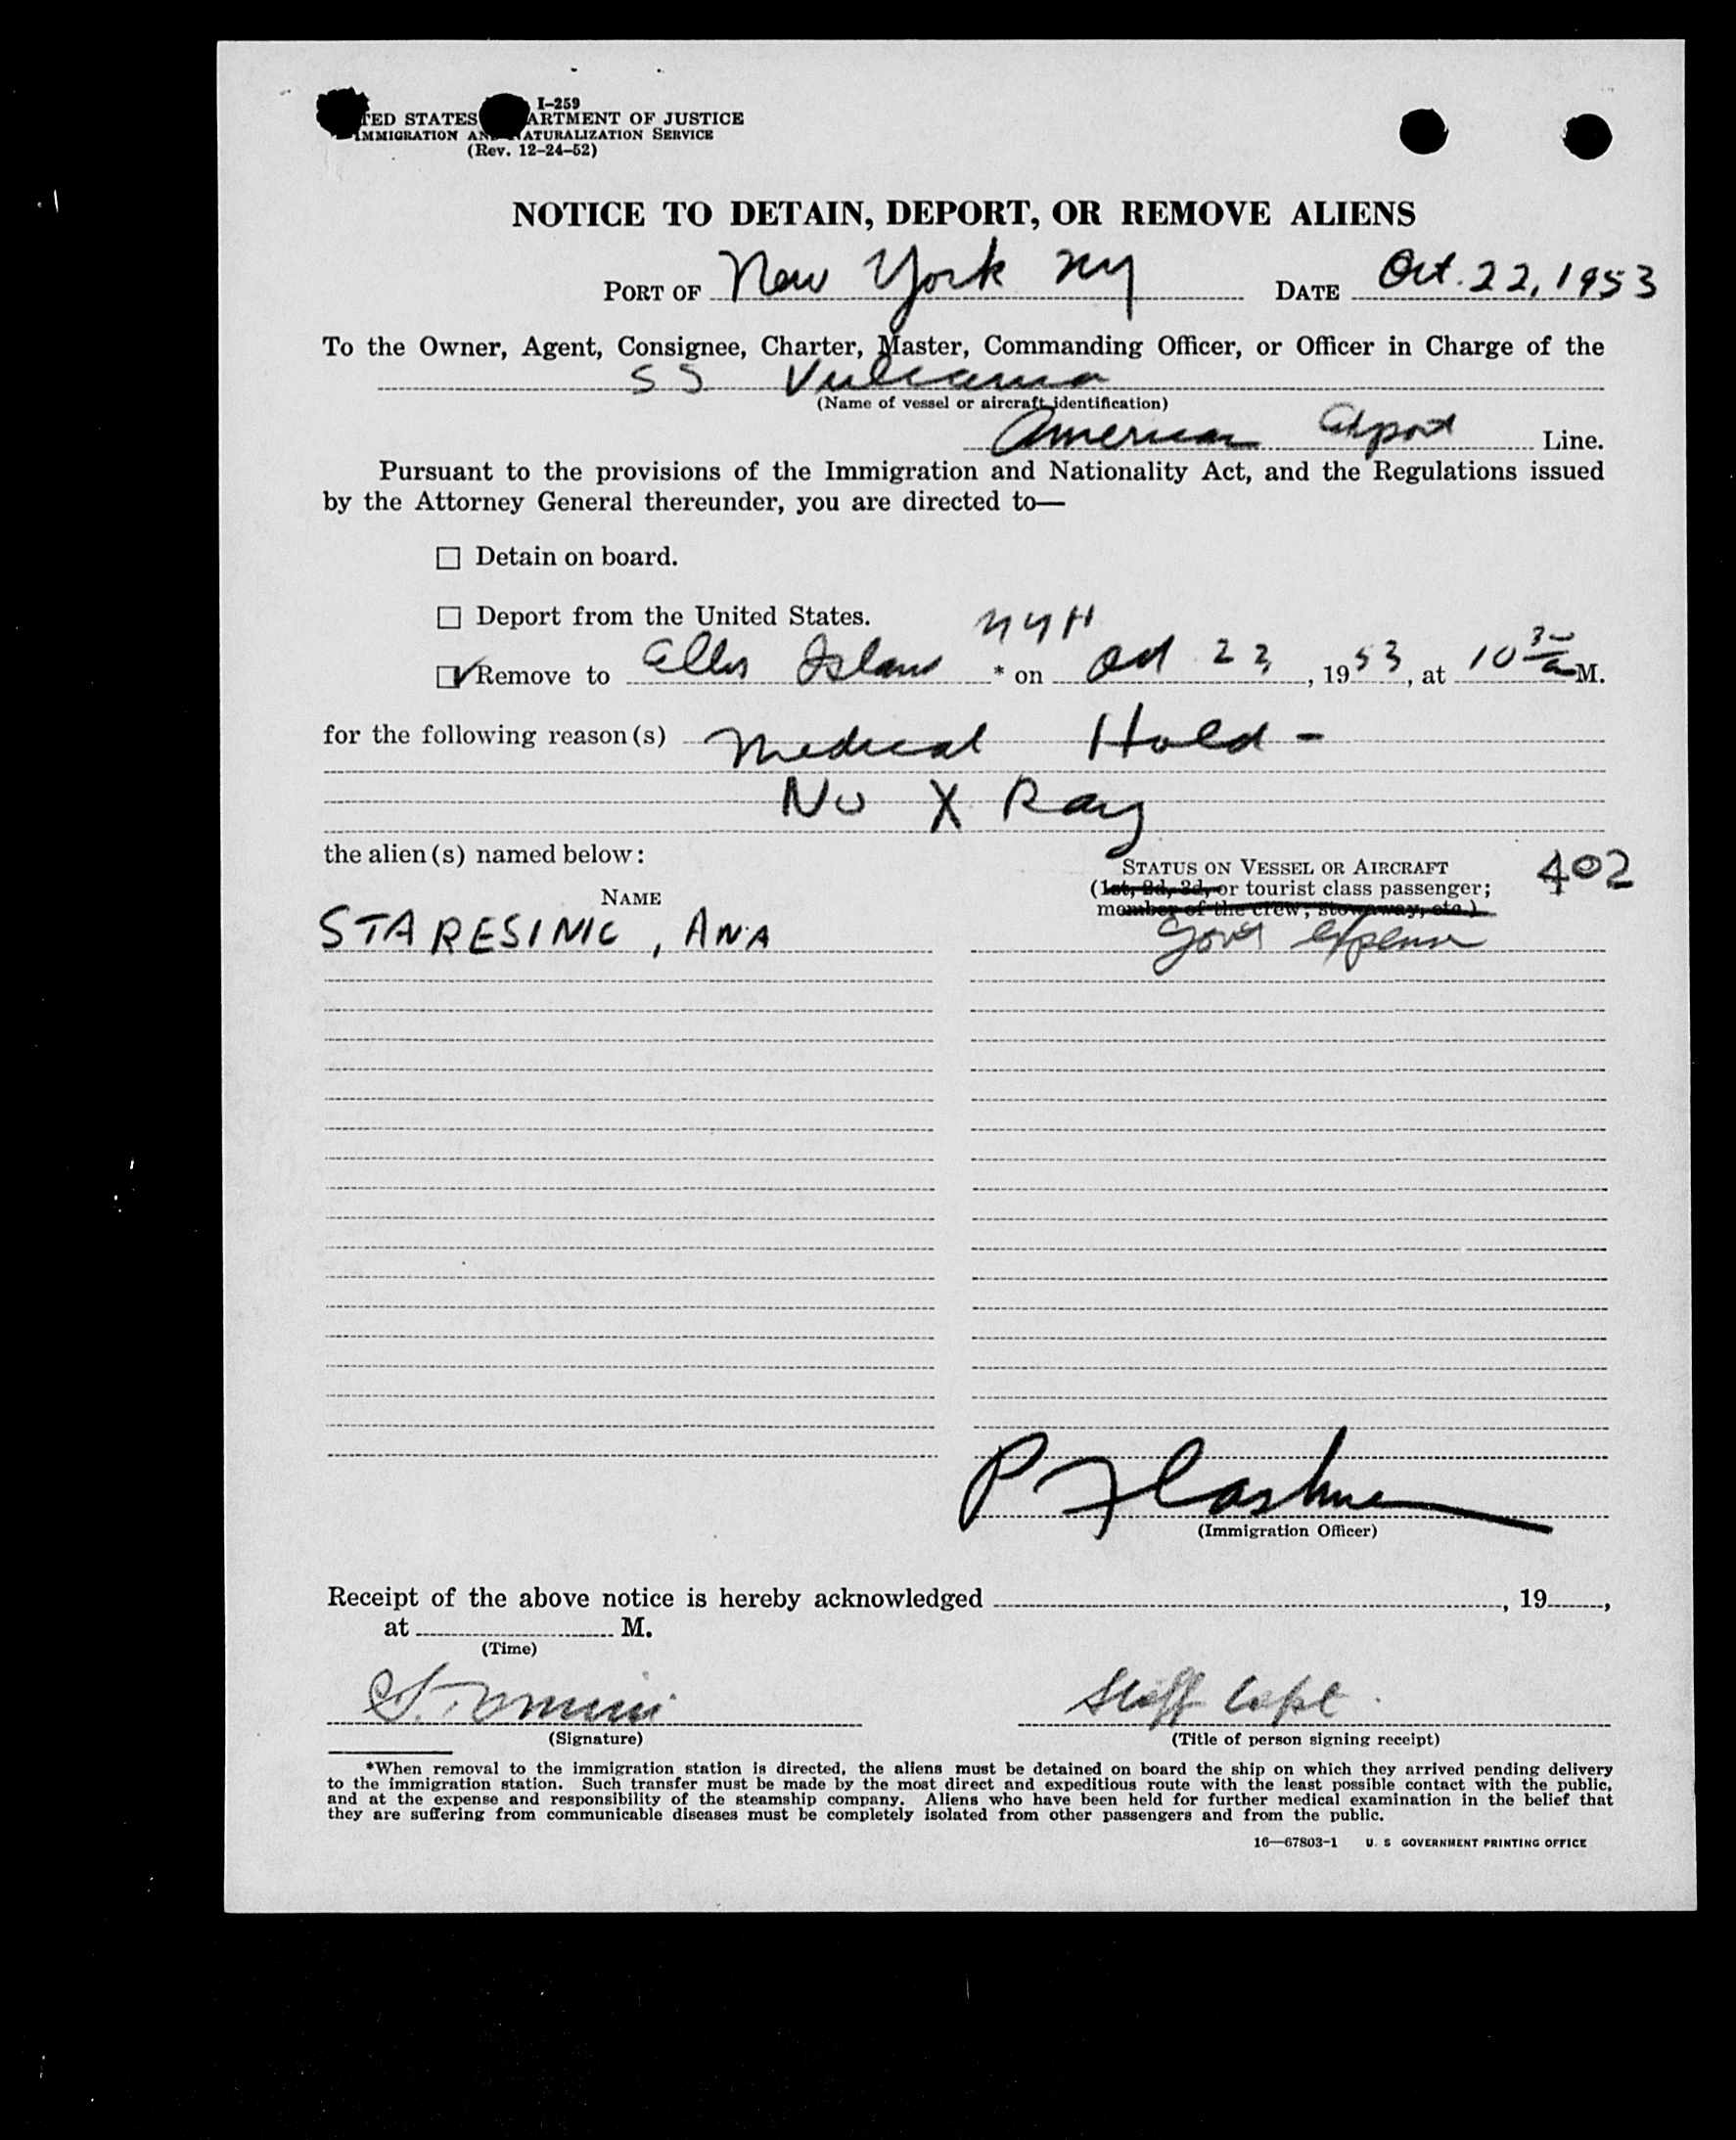 I-259
TED STATES ARTMENT OF JUSTICE
IMMIGRATION AND NATURALIZATION SERVICE
(Rev. 12-24-52)
NOTICE TO DETAIN, DEPORT, OR REMOVE ALIENS
PORT OF New York NY DATE Oct. 22, 1953
To the Owner, Agent, Consignee, Charter, Master, Commanding Officer, or Officer in Charge of the
SS Vulcania
(Name of vessel or aircraft identification)
American Export Line.
Pursuant to the provisions of the Immigration and Nationality Act, and the Regulations issued
by the Attorney General thereunder, you are directed to—
☐ Detain on board.
☐ Deport from the United States.
NYH
☑ Remove to Ellis Island * on Oct 22, 1953, at 10 30 a M.
for the following reason(s) Medical Hold -
No X Ray
the alien(s) named below:
STATUS ON VESSEL OR AIRCRAFT 402
(1st, 2d, 3d, or tourist class passenger;
NAME
member of the crew, stowaway, etc.)
STARESINIC, ANA Govt expense
(Immigration Officer)
Receipt of the above notice is hereby acknowledged , 19 ,
at M.
(Time)
Staff Capt.
(Signature) (Title of person signing receipt)
*When removal to the immigration station is directed, the aliens must be detained on board the ship on which they arrived pending delivery
to the immigration station. Such transfer must be made by the most direct and expeditious route with the least possible contact with the public,
and at the expense and responsibility of the steamship company. Aliens who have been held for further medical examination in the belief that
they are suffering from communicable diseases must be completely isolated from other passengers and from the public.
16—67803-1 U. S GOVERNMENT PRINTING OFFICE